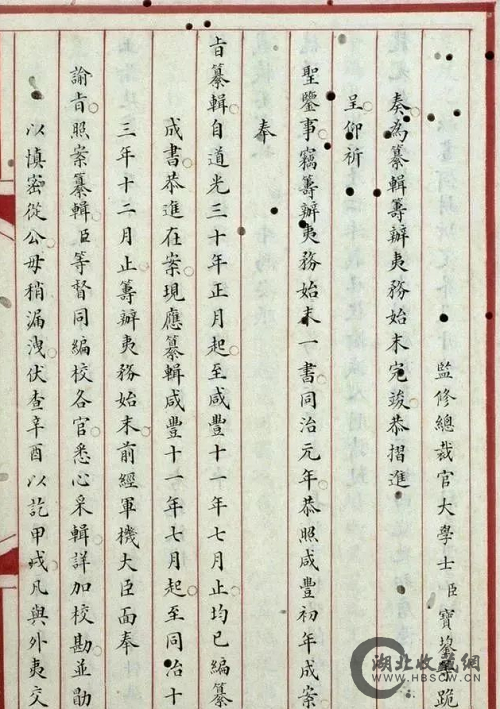 監修總裁官大學士臣寶鋆等跪
奏為纂輯籌辦夷務始末完竣恭摺進
呈仰祈
聖鑒事竊籌辦夷務始末一書同治元年恭照咸豐初年成案
奉
旨纂輯自道光三十年正月起至咸豐十一年七月止均已編纂
成書恭進在案現應纂輯咸豐十一年七月起至同治十
三年十二月止籌辦夷務始末前經軍機大臣面奉
諭旨照案纂輯臣等督同編校各官悉心采輯詳加校勘並勖
以慎密從公毋稍漏洩伏查辛酉以訖甲戌凡與外夷交
湖北收藏網
WWW.HBSCW.CN